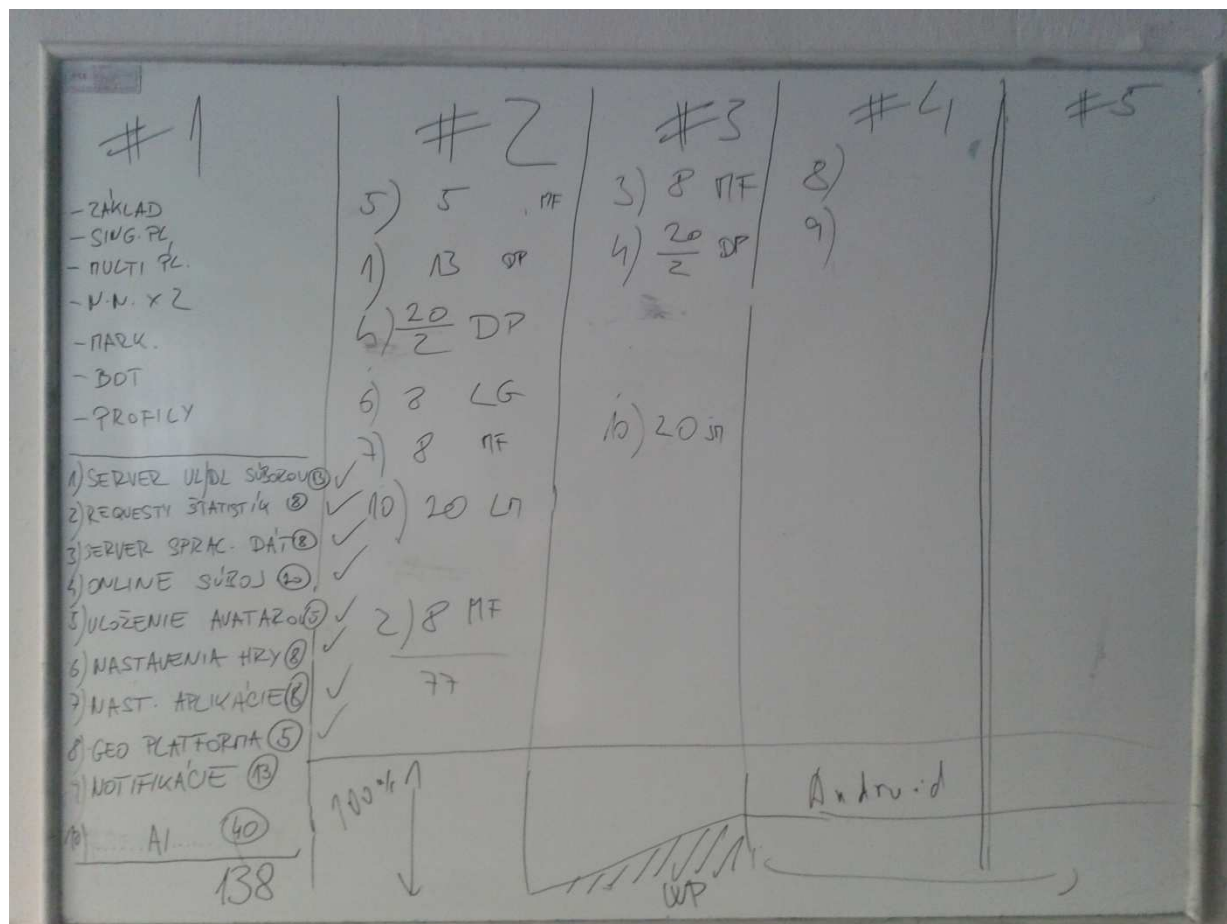 #1
- ZÁKLAD
- SING. PL.
- MULTI PL.
- N.N. x 2
- MARK.
- BOT
- PROFILY
1) SERVER UL/DL SÚBOROV 13 ✓
2) REQUESTY ŠTATISTÍK 8 ✓
3) SERVER SPRAC. DÁT 8 ✓
4) ONLINE SÚBOJ 20 ✓
5) ULOŽENIE AVATAROV 5 ✓
6) NASTAVENIA HRY 8 ✓
7) NAST. APLIKÁCIE 8 ✓
8) GEO PLATFORMA 5 ✓
9) NOTIFIKÁCIE 13
10) AI 40
138
#2
5) 5 MF
1) 13 DP
20
2 DP
6) 8 LG
7) 8 MF
10) 20 LM
2) 8 MF
77
100%
#3
3) 8 MF
4) 20
2 DP
10) 20
WP
#4
8)
9)
Android
#5